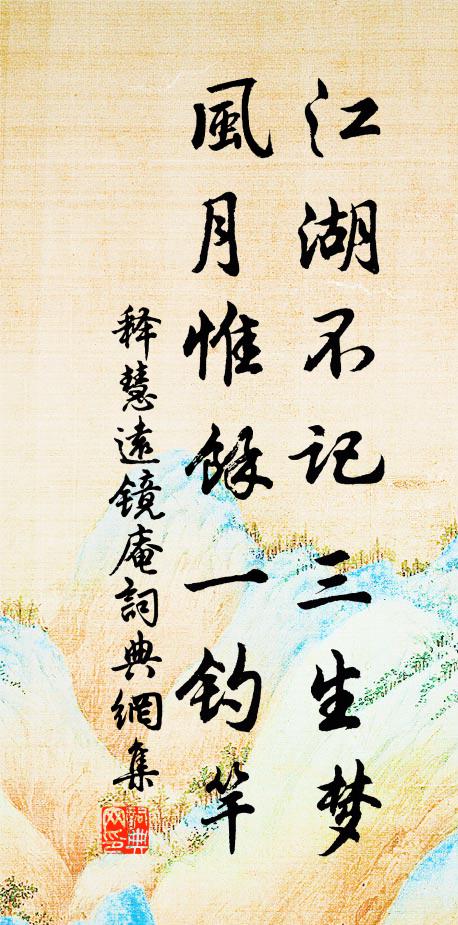 江湖不记三生梦
風月惟餘一钓竿
释慧遠镜庵詞典網集
詞典
网印